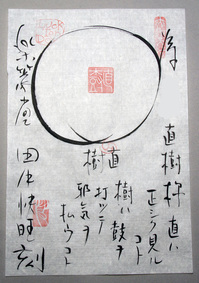 直樹 直ハ
正シク見ル
コト
樹ハ鼓ヲ
打ッテ
邪気ヲ
払ウコト
直樹
楽篆堂 田中快旺 刻